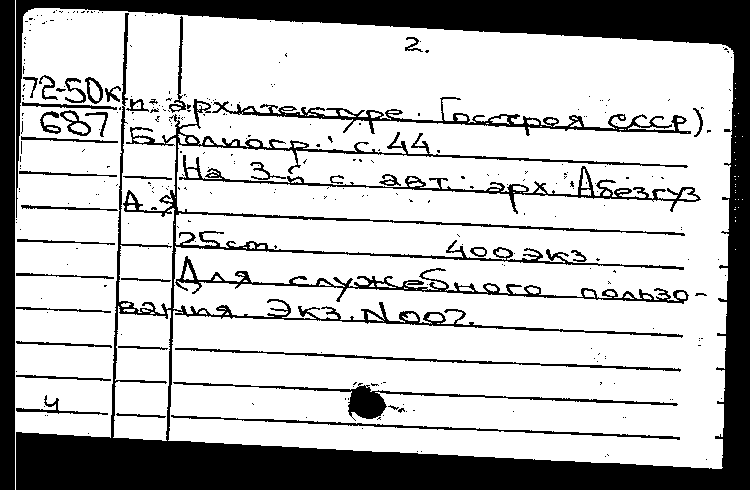 2.
72-50к п. архитектуре. Госстроя СССР).
687 Библиогр.: с. 44.
На 3-й с. авт.: арх. Абезгуз
А.Я.
25 см. 400 экз.
Для служебного пользо-
вания. Экз. N007.
ч